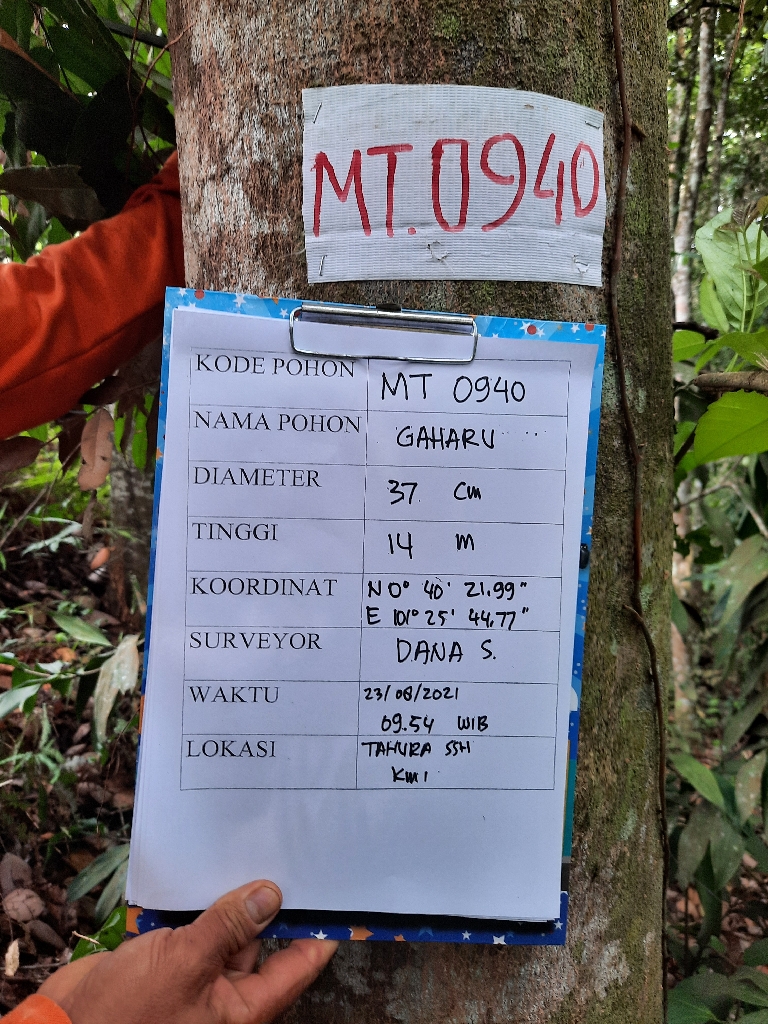 MT.0940
KODE POHON MT 0940
NAMA POHON GAHARU
DIAMETER 37 cm
TINGGI 14 m
KOORDINAT N 0° 40' 21.99"
E 101° 25' 44.77"
SURVEYOR DANA S.
WAKTU 23/08/2021
09.54 WIB
LOKASI TAHURA SSH
KM 1